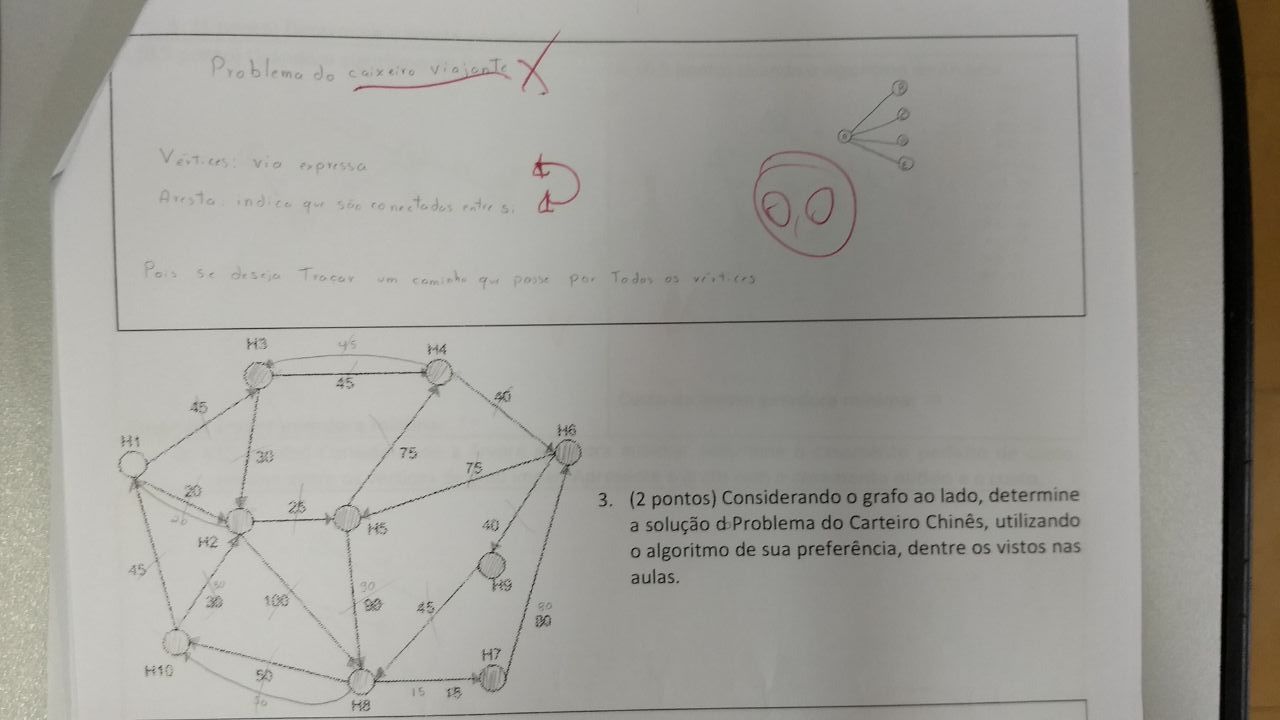 Problema do caixeiro viajante X
Vértices: via expressa
Aresta: indica que são conectados entre si
Pois se deseja Traçar um caminho que passe por Todos os vértices
45
H3
H4
45
45
40
H1
H6
30
75
75
20
25
H2
H5
40
H9
45
30
100
90
90
45
80
H10
50
H7
15
15
H8
3. (2 pontos) Considerando o grafo ao lado, determine
a solução d Problema do Carteiro Chinês, utilizando
o algoritmo de sua preferência, dentre os vistos nas
aulas.